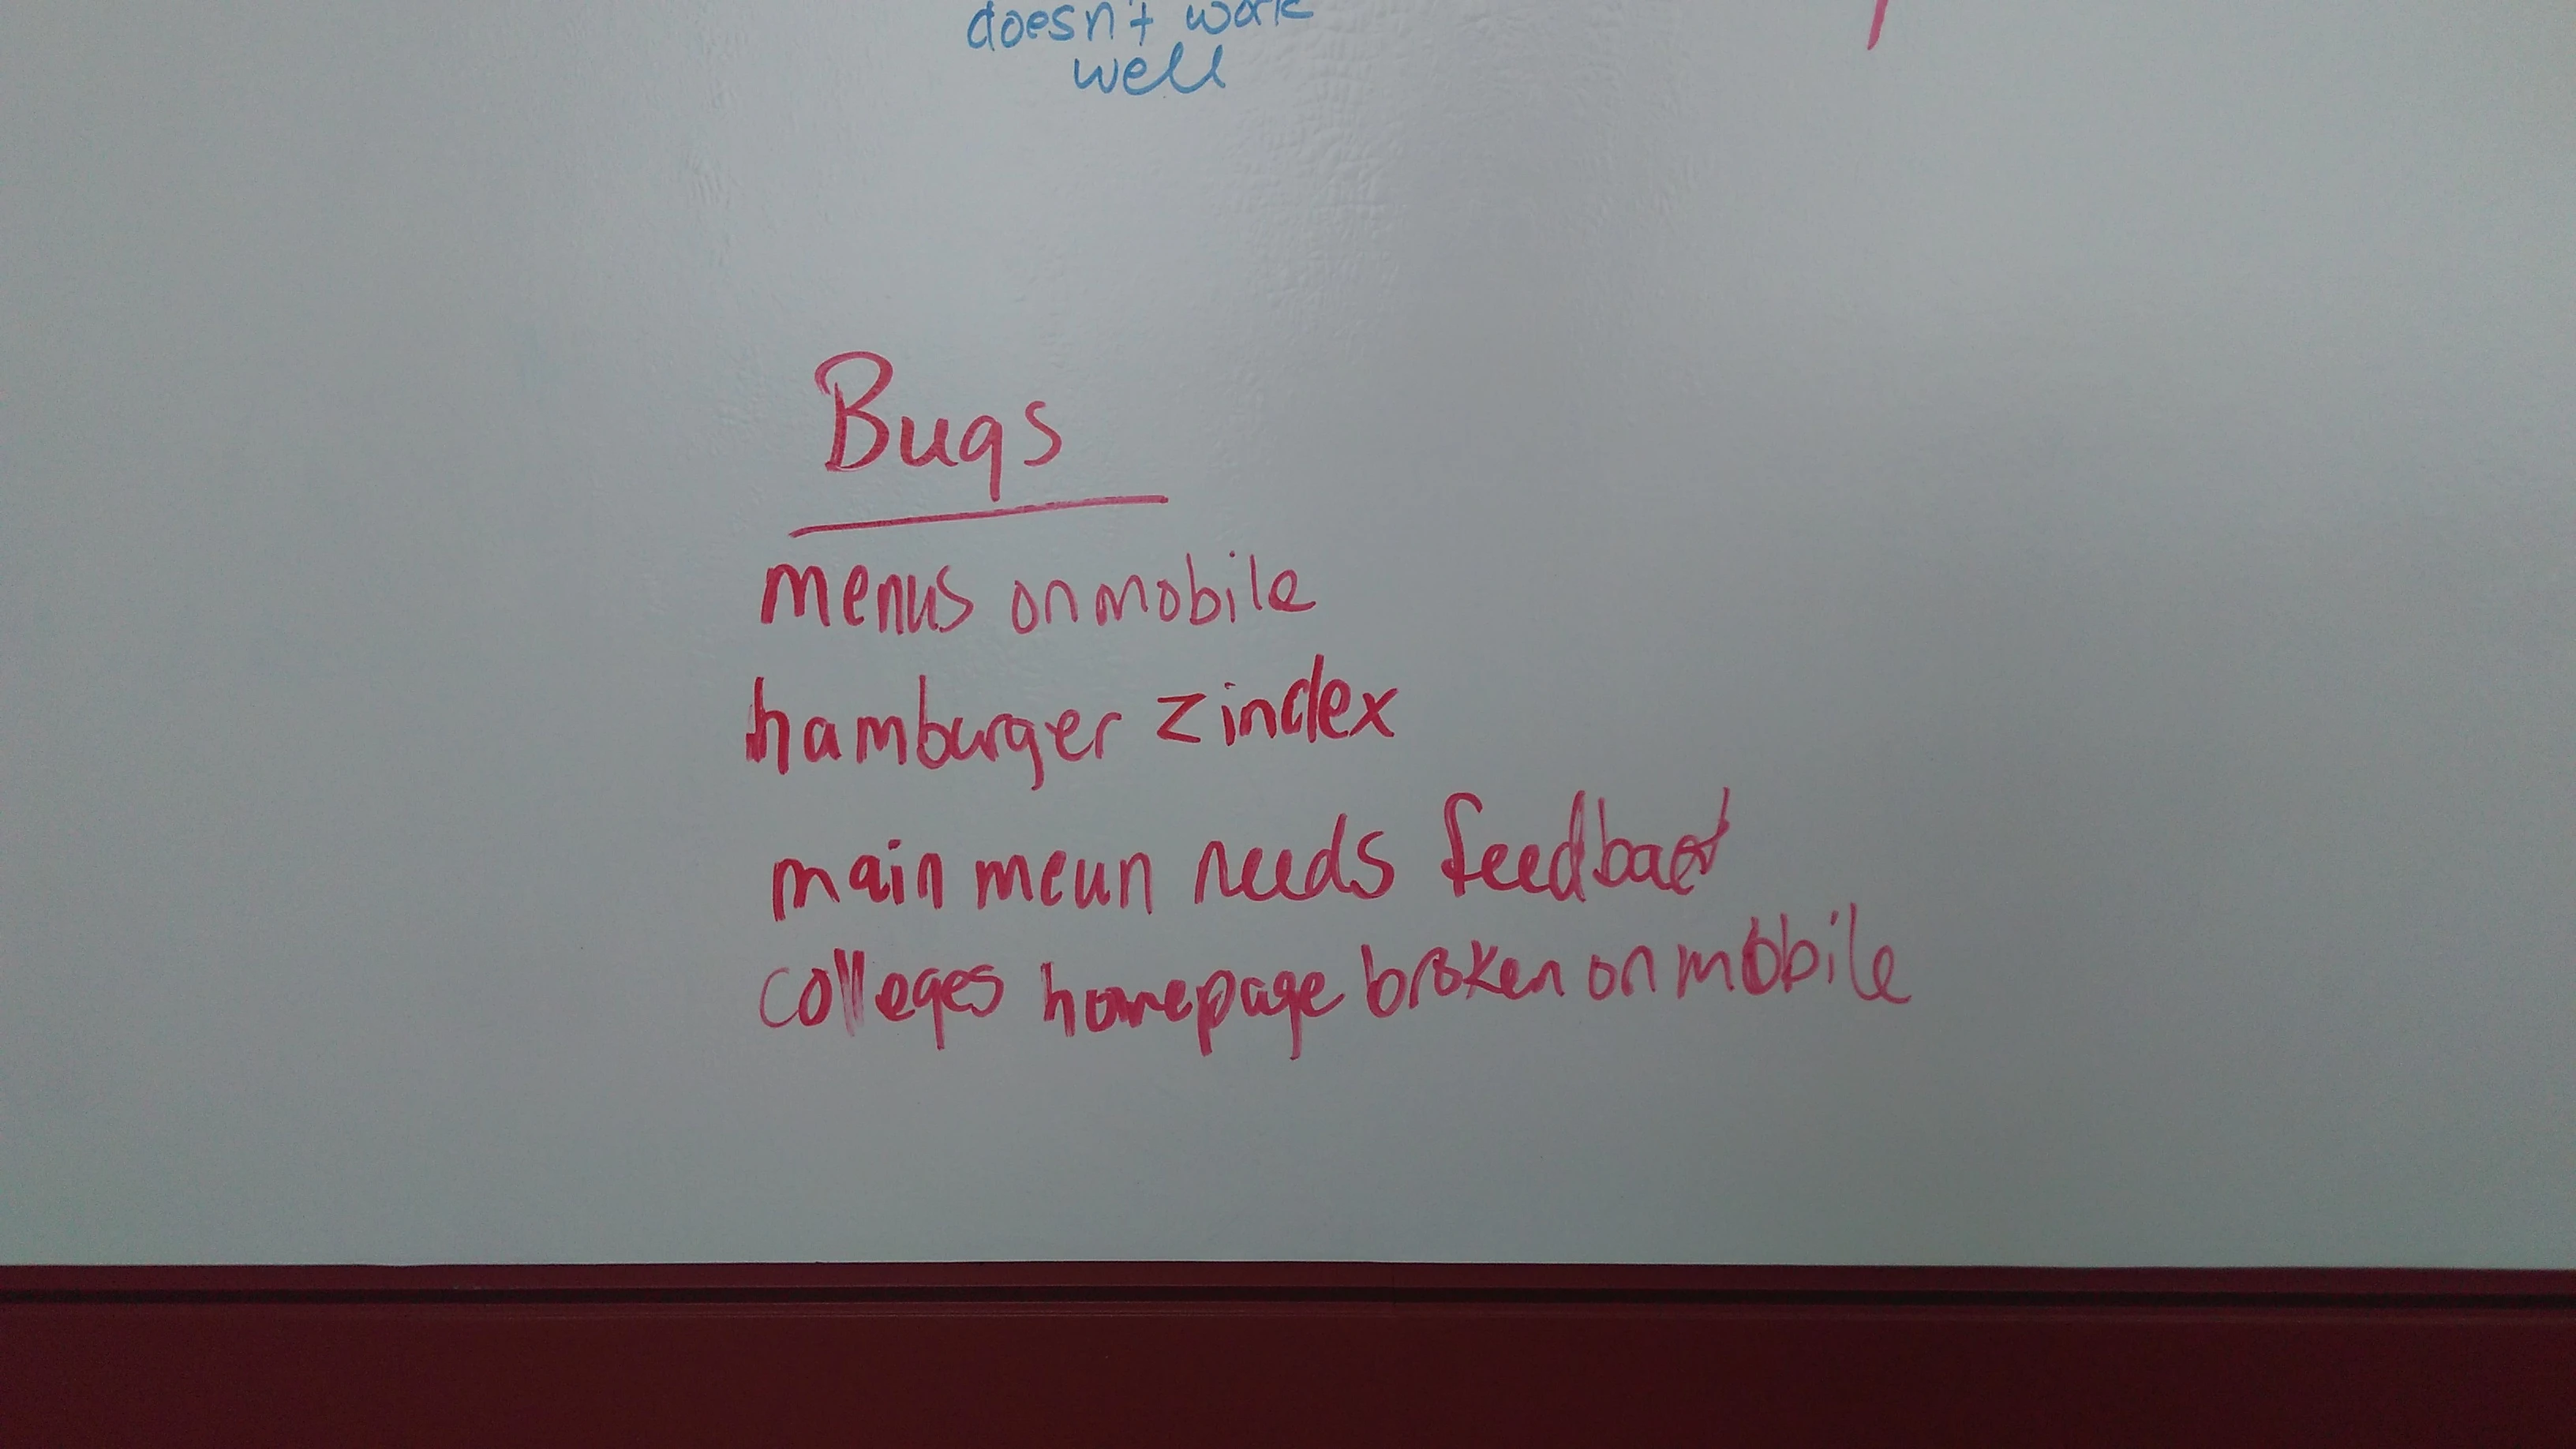 doesn't work
well
Bugs
menus on mobile
hamburger z index
main meun needs feedback
colleges homepage broken on mobile